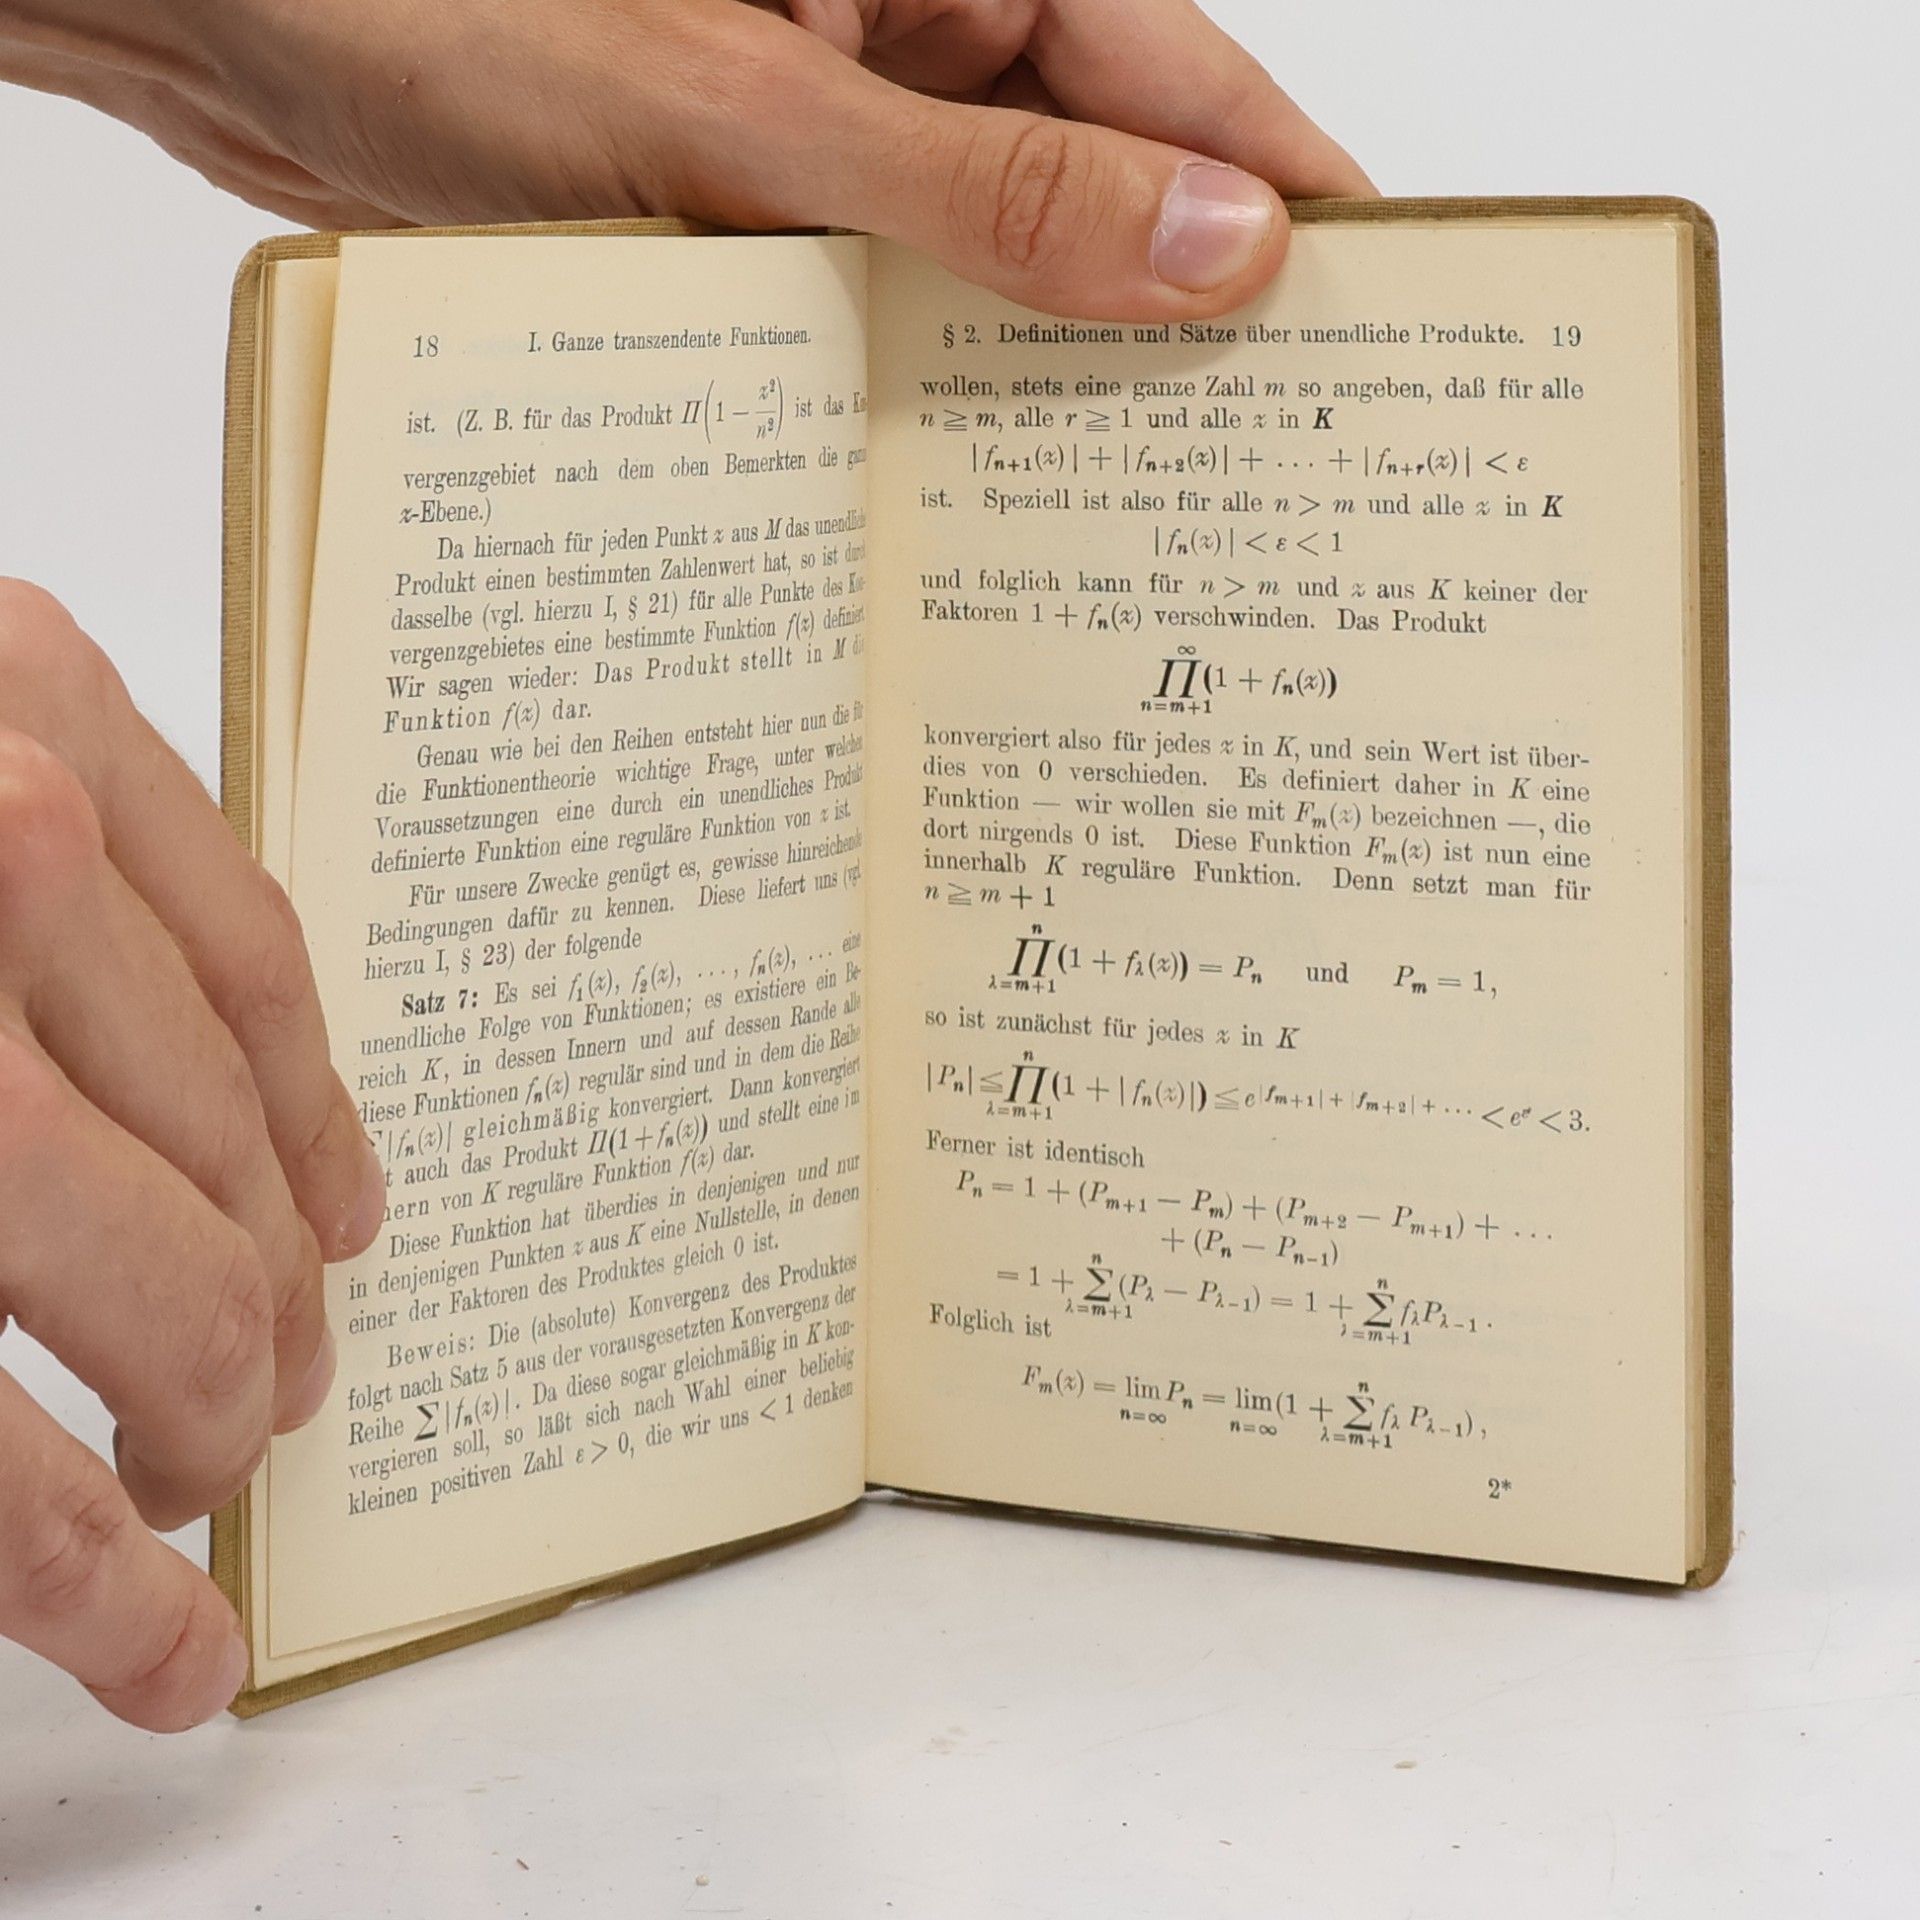 18 I. Ganze transzendente Funktionen.
ist. (Z. B. für das Produkt Π(1 − z²/n²) ist das
vergenzgebiet nach dem oben Bemerkten die
z-Ebene.)
Da hiernach für jeden Punkt z aus M das
Produkt einen bestimmten Zahlenwert hat, so ist
dasselbe (vgl. hierzu I, § 21) für alle Punkte des
vergenzgebietes eine bestimmte Funktion f(z)
Wir sagen wieder: Das Produkt stellt in M
Funktion f(z) dar.
Genau wie bei den Reihen entsteht hier nun die
die Funktionentheorie wichtige Frage, unter welchen
Voraussetzungen eine durch ein unendliches Produkt
definierte Funktion eine reguläre Funktion von z ist.
Für unsere Zwecke genügt es, gewisse hinreichende
Bedingungen dafür zu kennen. Diese liefert uns (vgl.
hierzu I, § 23) der folgende
Satz 7: Es sei f₁(z), f₂(z), ..., fₙ(z), ... eine
unendliche Folge von Funktionen; es existiere ein Be-
reich K, in dessen Innern und auf dessen Rande alle
diese Funktionen fₙ(z) regulär sind und in dem die Reihe
|fₙ(z)| gleichmäßig konvergiert. Dann konvergiert
auch das Produkt Π(1+fₙ(z)) und stellt eine im
von K reguläre Funktion f(z) dar.
Diese Funktion hat überdies in denjenigen und nur
in denjenigen Punkten z aus K eine Nullstelle, in denen
einer der Faktoren des Produktes gleich 0 ist.
Beweis: Die (absolute) Konvergenz des Produktes
folgt nach Satz 5 aus der vorausgesetzten Konvergenz der
Reihe ∑|fₙ(z)|. Da diese sogar gleichmäßig in K kon-
vergieren soll, so läßt sich nach Wahl einer beliebig
kleinen positiven Zahl ε > 0, die wir uns < 1 denken
§ 2. Definitionen und Sätze über unendliche Produkte. 19
wollen, stets eine ganze Zahl m so angeben, daß für alle
n ≧ m, alle r ≧ 1 und alle z in K
|fₙ₊₁(z)| + |fₙ₊₂(z)| + ... + |fₙ₊ᵣ(z)| < ε
ist. Speziell ist also für alle n > m und alle z in K
|fₙ(z)| < ε < 1
und folglich kann für n > m und z aus K keiner der
Faktoren 1 + fₙ(z) verschwinden. Das Produkt
∞
Π(1 + fₙ(z))
n=m+1
konvergiert also für jedes z in K, und sein Wert ist über-
dies von 0 verschieden. Es definiert daher in K eine
Funktion — wir wollen sie mit Fₘ(z) bezeichnen —, die
dort nirgends 0 ist. Diese Funktion Fₘ(z) ist nun eine
innerhalb K reguläre Funktion. Denn setzt man für
n ≧ m + 1
n
Π(1 + f_λ(z)) = Pₙ und Pₘ = 1,
λ=m+1
so ist zunächst für jedes z in K
n
|Pₙ| ≦ Π(1 + |fₙ(z)|) ≦ e^{|fₘ₊₁| + |fₘ₊₂| + ...} < e^ε < 3.
λ=m+1
Ferner ist identisch
Pₙ = 1 + (Pₘ₊₁ − Pₘ) + (Pₘ₊₂ − Pₘ₊₁) + ...
+ (Pₙ − Pₙ₋₁)
n n
= 1 + ∑(P_λ − P_{λ−1}) = 1 + ∑f_λP_{λ−1}.
λ=m+1 λ=m+1
Folglich ist
n
Fₘ(z) = lim Pₙ = lim(1 + ∑f_λ P_{λ−1}),
n=∞ n=∞ λ=m+1
2*